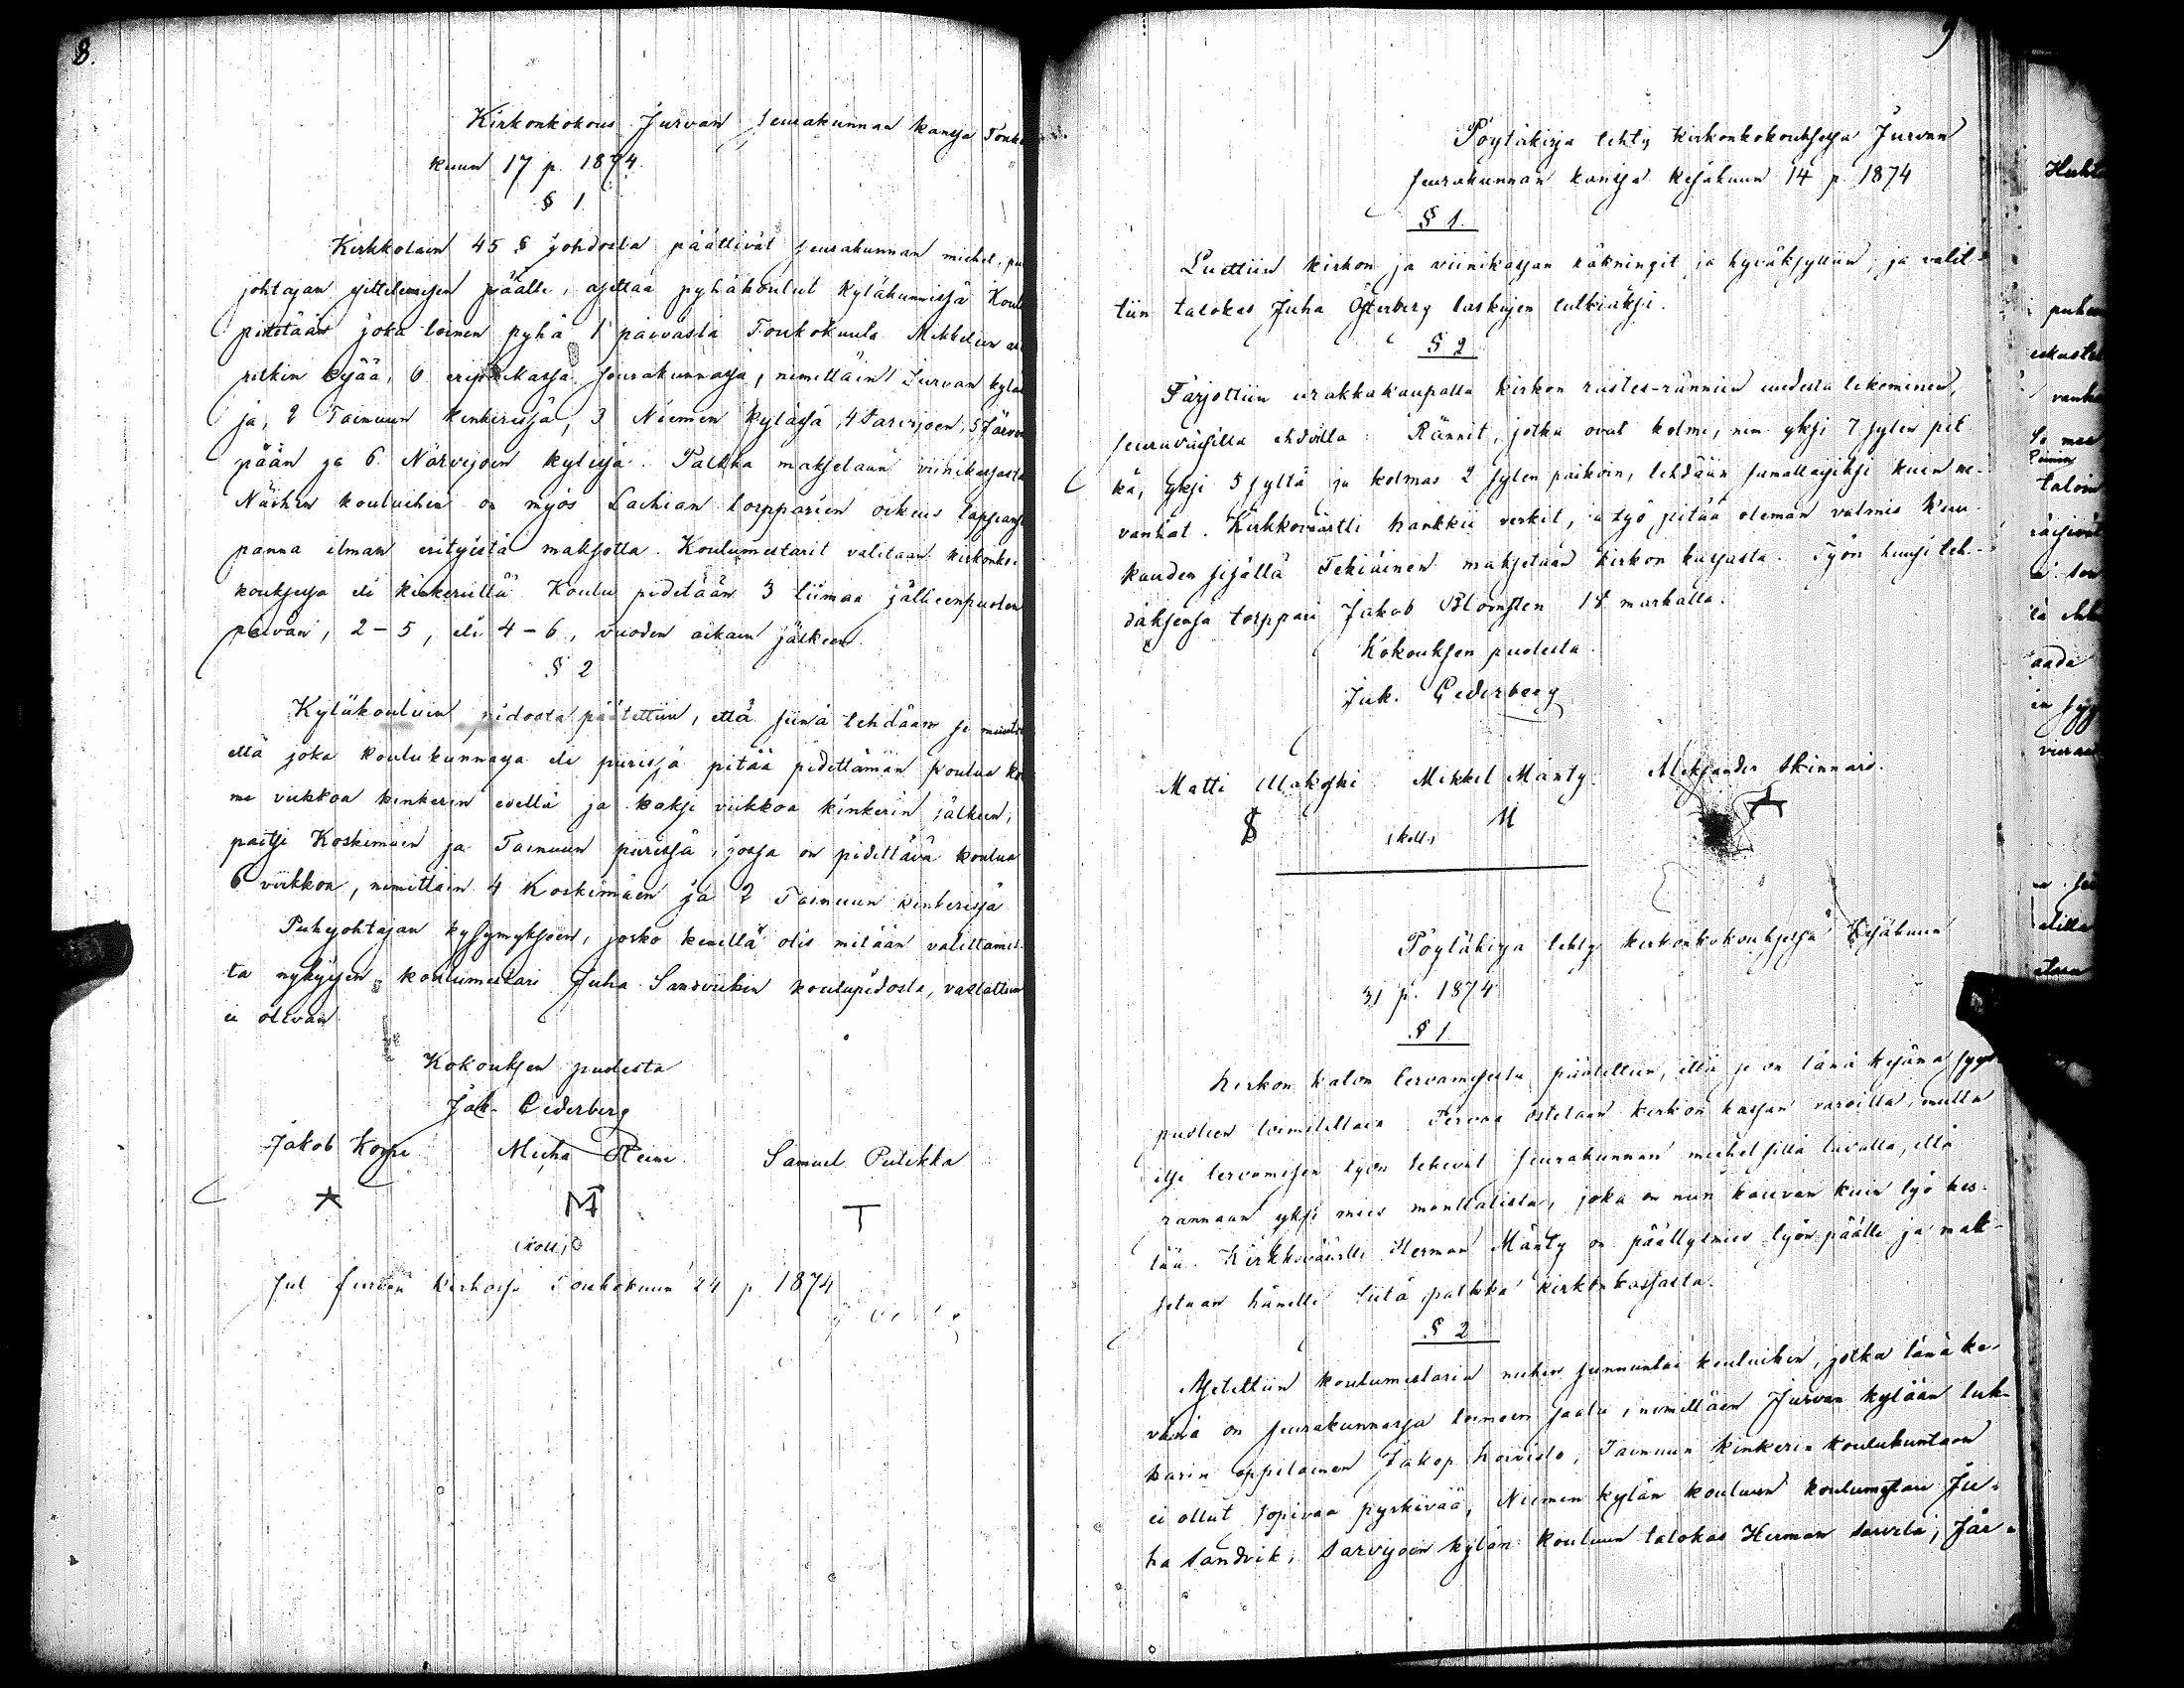 8.
Kirkonkokous Jurvan seurakunnan kanssa Touko
kuun 17 p. 1874.
§ 1.
Kirkkolain 45 § johdosta päättivät seurakunnan miehet, pu
johtajan esittelemisen päälle, asettaa pyhäkoulut kyläkunnissa Koul
pidetään joka toinen pyhä 1 päivästä Toukokuuta Mikkelin
pitkin kesää, 6 eripaikassa seurakunnassa, nimittäin 1 Jurvan kyläs
sä, 2 Tainuun kinkerissä, 3 Niemen kylässä, 4 Sarvijoen, 5 Järven
pään ja 6 Närvijoen kylissä. Palkka maksetaan viinikassasta
Näihin kouluihin on myös Laihian torpparien oikeus lapsiansa
panna ilman erityistä maksotta. Koulumestarit valitaan kirkonko-
kouksessa eli kinkerillä. Koulu pidetään 3 tiimaa jälkeenpuolen
päivän, 2 - 5, eli 4 - 6, vuoden aikain jälkeen.
§ 2
Kyläkoulun pidosta päätettiin, että siinä tehdään se muutos
että joka koulukunnassa eli piirissä pitää pidettämän koulua kol
me viikkoa kinkerin edellä ja kaksi viikkoa kinkerin jälkeen,
paitsi Koskimäen ja Tainuun piirissä, jossa on pidettävä koulua
6 viikkoa, nimittäin 4 Koskimäen ja 2 Tainuun kinkerissä
Puhejohtajan kysymykseen, josko keneellä olis mitään valittamis-
ta nykyisen koulumestari Juha Sandvikin koulupidosta, vastattiin
ei olevan.
Kokouksen puolesta
Jak. Cederberg
Jakob Korpi Micha Reini Samuel Pulikka
M T
(koll.)
Jul. Jurvan kirkossa Toukokuun 24 p. 1874
9
Pöytäkirja tehty kirkonkokouksessa Jurvan
seurakunnan kanssa Kesäkuun 14 p. 1874
§ 1.
Luettiin kirkon ja viinikassan räkningit ja hyväksyttiin, ja valit-
tiin talokas Juha Österberg laskujen tutkiaksi.
§ 2
Tarjottiin urakkakaupalla kirkon rästes-rännien uudesta tekeminen,
seuraavaisilla ehdoilla: Rännit, jotka ovat kolme, nim. yksi 7 sylen pit
kä, yksi 5 syltä ja kolmas 2 sylen paikoin, tehdään samallaisiksi kuin ne
vanhat. Kirkkoväärtti hankkii verkit, ja työ pitää oleman valmis kuu-
kauden sisällä. Tekiäinen maksetaan kirkon kassasta. Työn huusi teh-
däksensä torppari Jakob Blomsten 18 markalla.
Kokouksen puolesta.
Jak. Cederberg
Matti Mäkoski Mikkel Mänty. Aleksander Skinnari.
(koll.) M
Pöytäkirja tehty kirkonkokouksessa Kesäkuun
31 p. 1874
§ 1
Kirkon katon tervamisesta päätettiin, että se on tänä kesänä syys
puoleen toimitettava. Tervaa ostetaan kirkon kassan varoilla, mutta
itse tervamisen työn tekevät seurakunnan miehet sillä tavalla, että
rannaan yksi mies manttalista, joka on niin kauvan kuin työ kes-
tää. Kirkkoväärtti Herman Mänty on päällysmies työn päälle ja mak-
setaan hänelle siitä palkka kirkonkassasta.
§ 2
Asetettiin koulumestaria niihin sunnuntai kouluihin, jotka tänä ke-
vännä on seurakunnassa toimeen saatu, nimittäin Jurvan kylään luk-
karin oppilainen Jakop Koivisto, Tainuun kinkerin koulukuntaan
ei ollut sopivaa pyrkivää, Niemen kylän kouluun koulumestari Ju-
ha Sandvik, Sarvijoen kylän kouluun talokas Herman Sarvela, Jär-